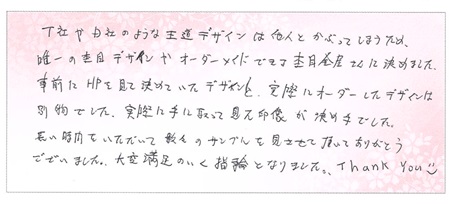 T社やD社のような王道デザインは他人とかぶってしまうため、
唯一の杢目デザインやオーダーメイドできる杢目金屋さんに決めました。
事前にHPを見て決めていたデザインと、実際にオーダーしたデザインは
別物でした。実際に手に取って見た印象が決め手でした。
長い時間をいただいて数々のサンプルを見させて頂いてありがとう
ございました。大変満足のいく指輪となりました。Thank You